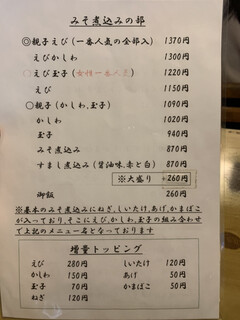 みそ煮込みの部
◎親子えび(一番人気の全部入) 1370円
えびかしわ 1300円
〇えび玉子(女性一番人気) 1220円
えび 1150円
〇親子(かしわ、玉子) 1090円
かしわ 1020円
玉子 940円
みそ煮込み 870円
すまし煮込み(醤油味、赤と白) 870円
※大盛り 260円
御飯 260円
※基本のみそ煮込みにねぎ、しいたけ、あげ、かまぼこ
が入っており、そこにえび、かしわ、玉子の組み合わせ
で上記のメニュー名となっております
増量トッピング
えび 280円 しいたけ 120円
かしわ 150円 あげ 50円
玉子 70円 かまぼこ 50円
ねぎ 120円